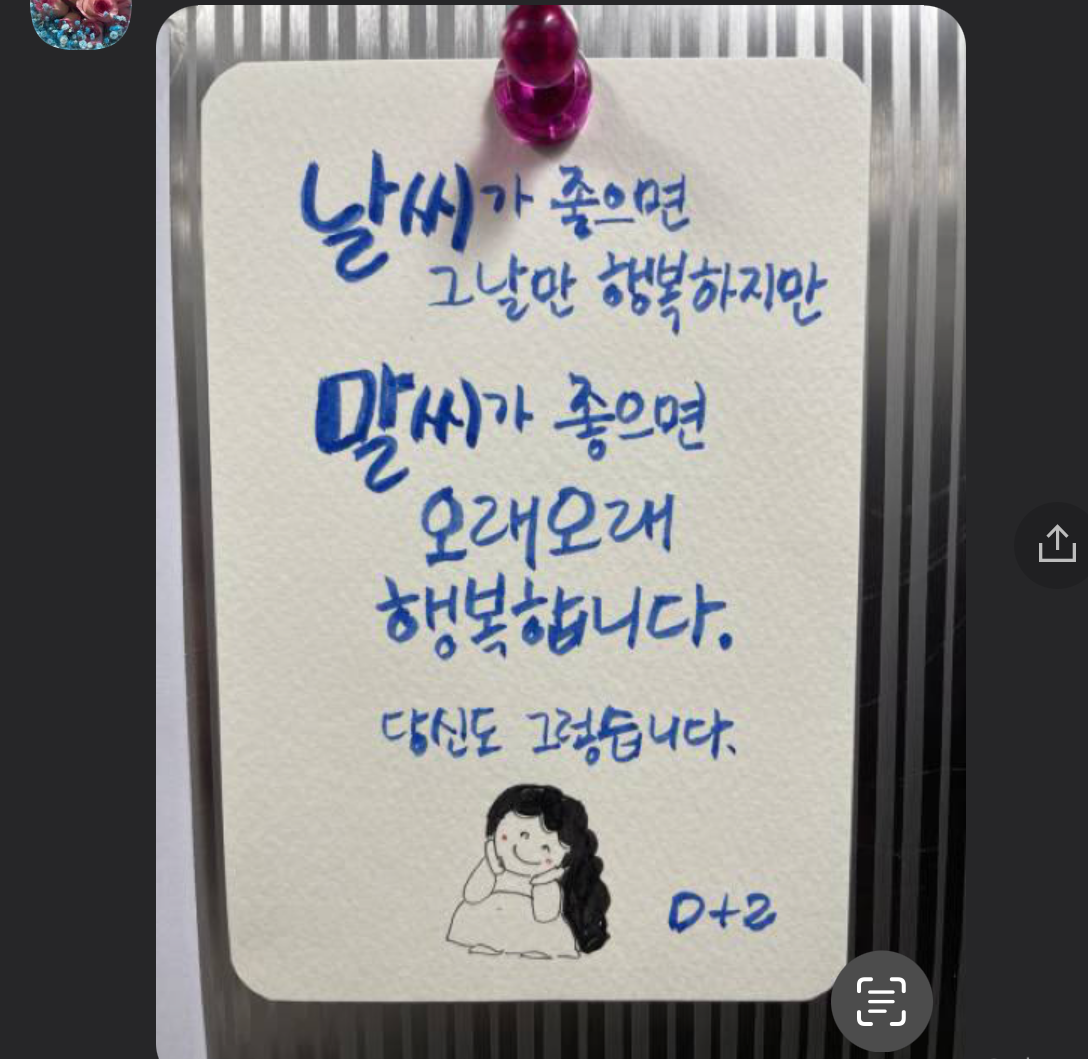 날씨가 좋으면
그날만 행복하지만
말씨가 좋으면
오래오래
행복합니다.
당신도 그렇습니다.
D+2